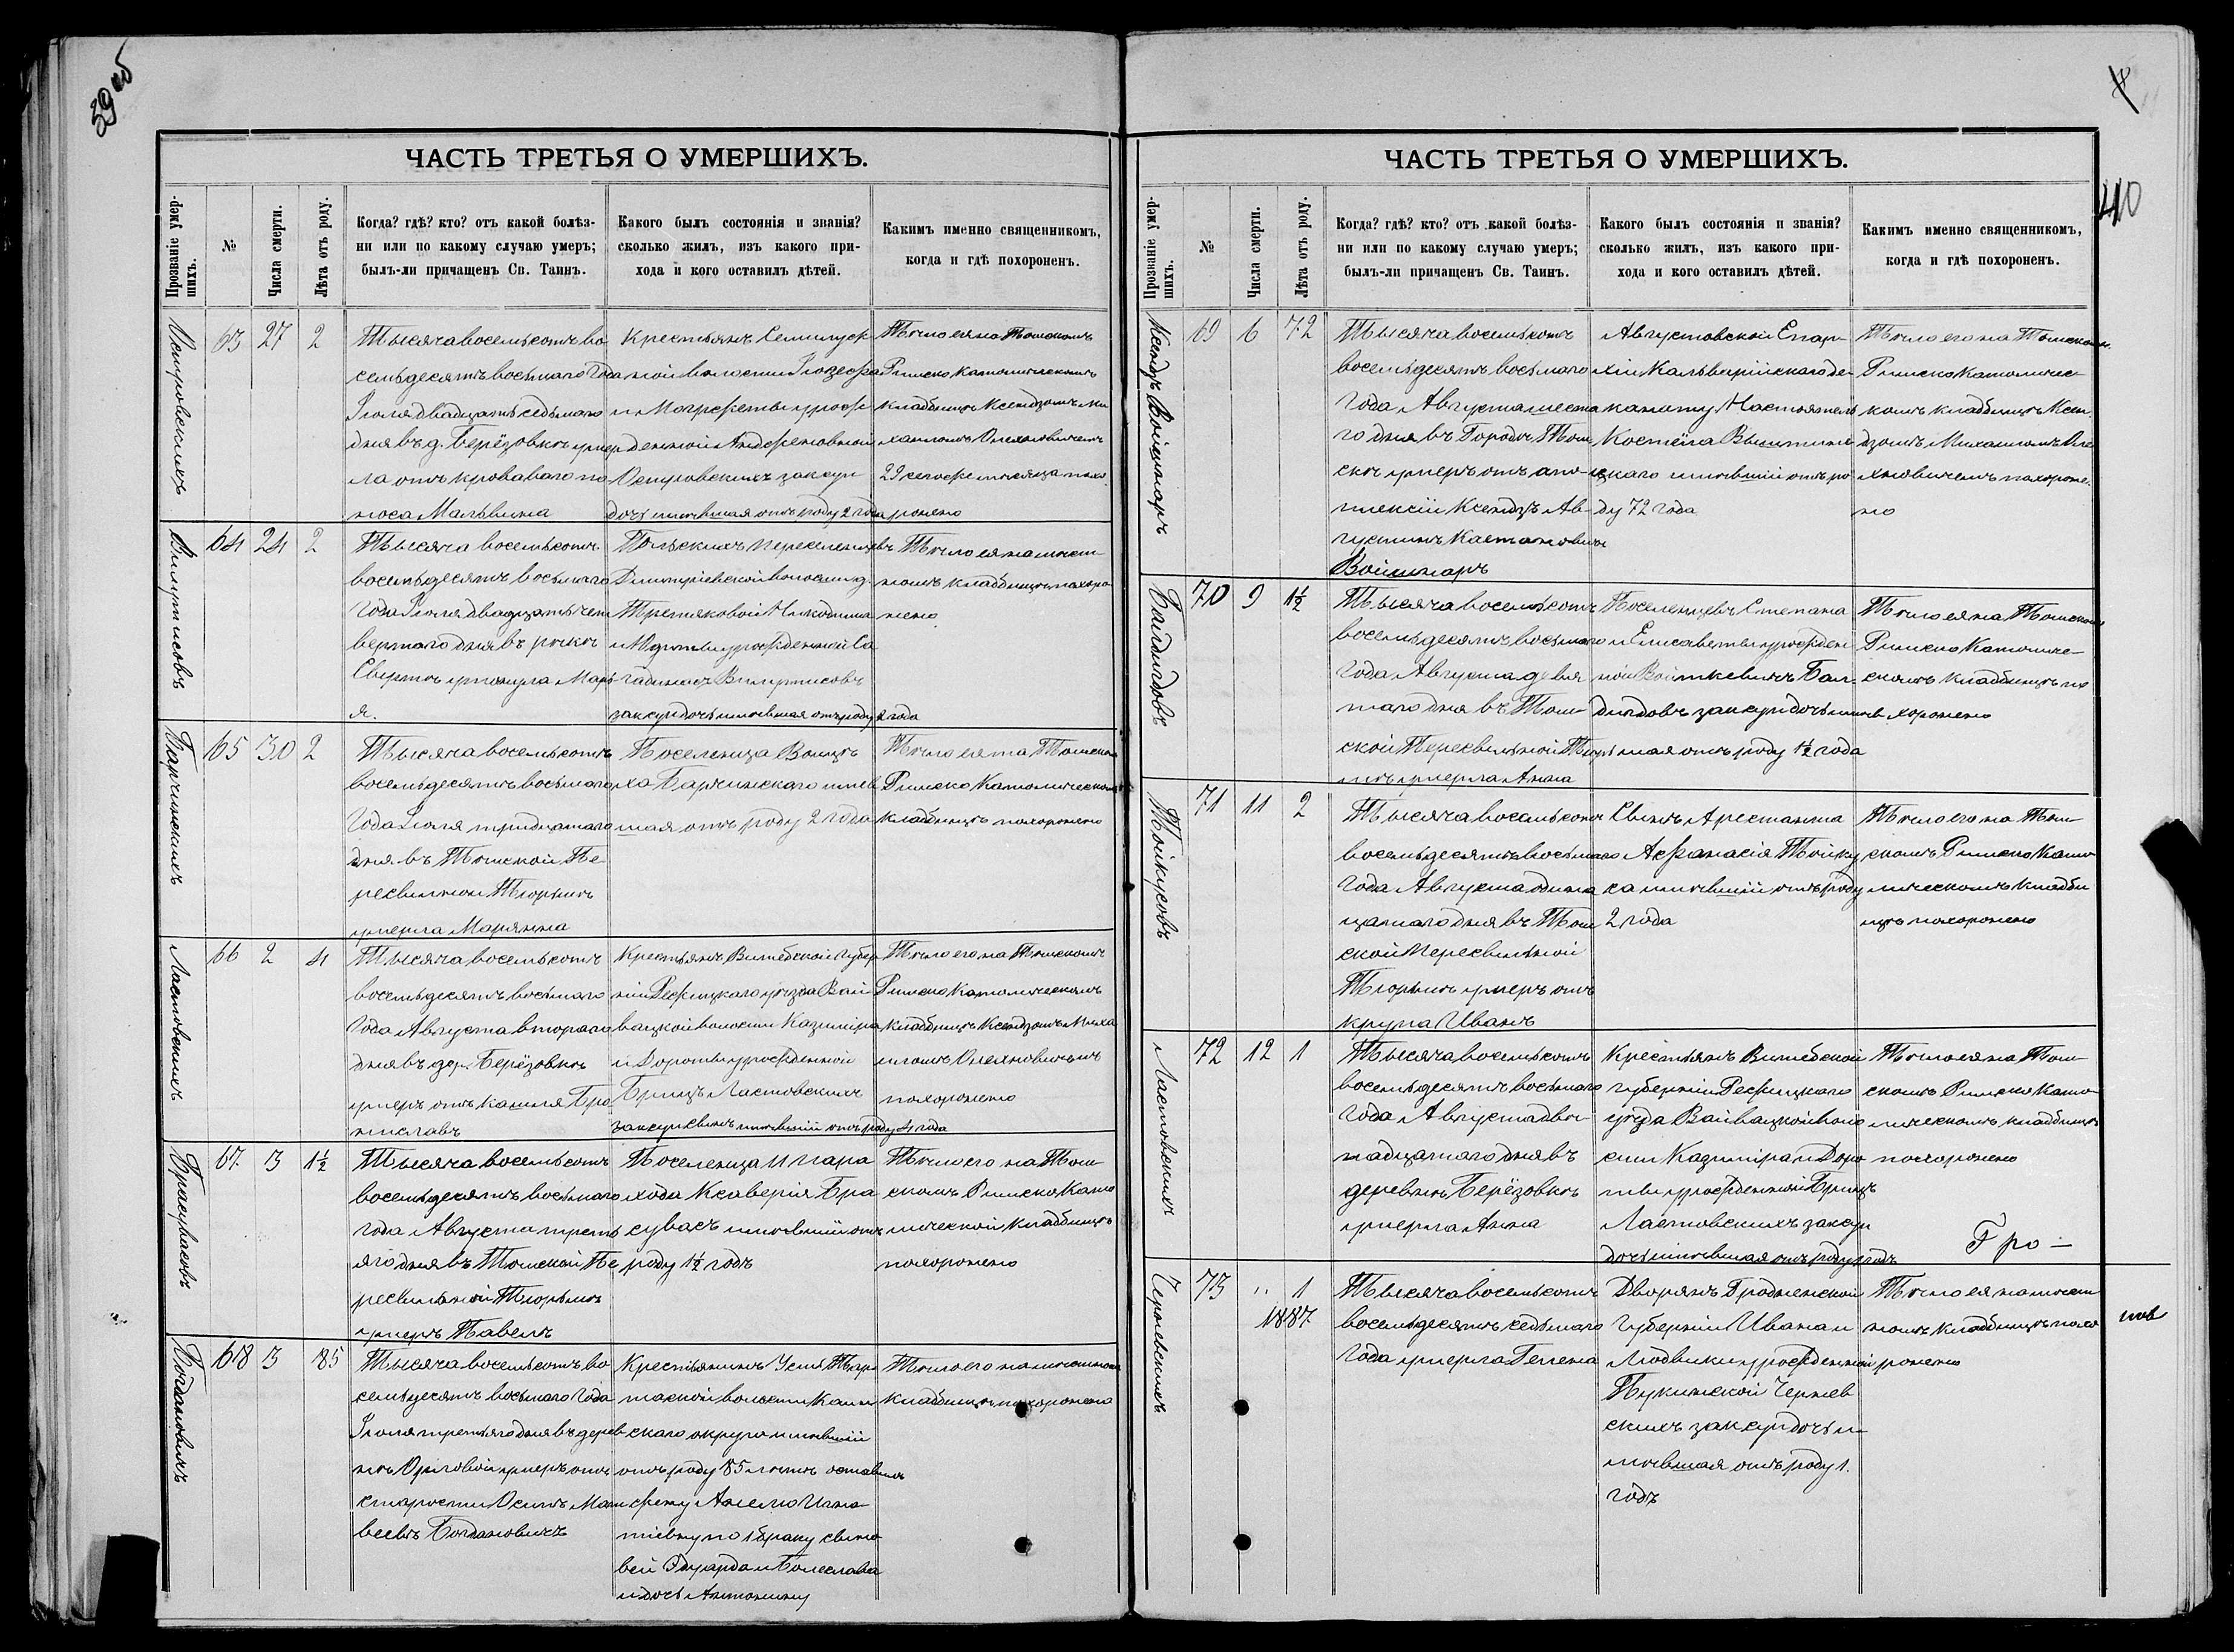 39 об
ЧАСТЬ ТРЕТЬЯ О УМЕРШИХЪ.
Прозваніе умер-
шихъ.
№
Числа смерти.
Лѣта отъ роду.
Когда? гдѣ? кто? отъ какой болѣз-
ни или по какому случаю умеръ;
былъ-ли причащенъ Св. Таинъ.
Какого былъ состоянія и званія?
сколько жилъ, изъ какого при-
хода и кого оставилъ дѣтей.
Каким именно священникомъ,
когда и гдѣ похороненъ.
63 27 2
Тысяча восемьсотъ во
семьдесятъ восьмаго Года
Іюля двадцать седьмаго
дня въ д. Берёзовкѣ умер
ла отъ кроваваго по
носа Мальвина
Крестьянъ
ной волости Іозефа
и урож
денной
Островскихъ закон
дочь имѣвшая отъ роду 2 года
Тѣло ея на Томскомъ
Римско Католическомъ
кладбищѣ Ксендзомъ Ми
хаиломъ Олехновичемъ
29 сего же мѣсяца похо
ронено
Вилутисовъ
64 24 2
Тысяча восемьсотъ
восемьдесятъ восьмаго
Года Іюля двадцать чет
вертаго дня въ рѣкѣ
утонула Марі
я.
Польскихъ переселенцевъ
Дмитріевской волости д.
Третяковой Никодима
и Юдиты урожденной Са
Вилутисовъ
закон дочь имѣвшая отъ роду 2 года
Тѣло ея на мѣст
номъ кладбищѣ похоро
нено
Барчинскихъ
65 30 2
Тысяча восемьсотъ
восемьдесятъ восьмаго
Года Іюля тридцатаго
дня въ Томской Пе
ресыльной Тюрьмѣ
умерла Марянна
Поселенца Войцѣ
ха Барчинскаго имѣв
шая отъ роду 2 года
Тѣло ея на Томском
Римско Католическомъ
кладбищѣ похоронено
Ластовскихъ
66 2 4
Тысяча восемьсотъ
восемьдесятъ восьмаго
Года Августа втораго
дня въ дер. Берёзовкѣ
умеръ отъ кашля Бро
ниславъ
Крестьянъ Витебской Губер
ніи Режицкаго уѣзда Вай
вацкой волости Казиміра
и Дороты урожденной
Бринцъ Ластовскихъ
закон сынъ имѣвшій отъ роду 4 года
Тѣло его на Томскомъ
Римско Католическомъ
кладбищѣ Ксендзомъ Миха
иломъ Олехновичемъ
похоронено
Брасувасовъ
67 3 1½
Тысяча восемьсотъ
восемьдесятъ восьмаго
года Августа треть
яго дня въ Томской Пе
ресыльной Тюрьмѣ
умеръ Павелъ
Поселенца
Ксаверія Бра
сувасъ имѣвшій отъ
роду 1½ годъ
Тѣло его на Том
скомъ Римско Като
лической кладбищѣ
похоронено
Богдановичъ
68 3 85
Тысяча восемьсотъ во
семьдесятъ восьмаго Года
Іюля третьяго дня въ дерев
нѣ Орловой умеръ отъ
старости Осипъ Мат
веевъ Богдановичъ
Крестьянинъ Усть Тар
таской волости Каин
скаго округа имѣвшій
отъ роду 85 лѣтъ оставилъ
жену Анелю Игна
тіевну по 1 браку сыно
вей Эдуарда и Болеслава
и дочь Антонину
Тѣло его на мѣстномъ
кладбищѣ похоронено
40
ЧАСТЬ ТРЕТЬЯ О УМЕРШИХЪ.
Прозваніе умер-
шихъ.
№
Числа смерти.
Лѣта отъ роду.
Когда? гдѣ? кто? отъ какой болѣз-
ни или по какому случаю умеръ;
былъ-ли причащенъ Св. Таинъ.
Какого былъ состоянія и званія?
сколько жилъ, изъ какого при-
хода и кого оставилъ дѣтей.
Каким именно священникомъ,
когда и гдѣ похороненъ.
Ксендзъ Войшнаръ
69 6 72
Тысяча восемьсотъ
восемьдесятъ восьмаго
года Августа шеста
го дня въ Городѣ Том
скѣ умеръ отъ апо
плексіи Ксендзъ Ав-
густинъ Каетановичъ
Войшнаръ
Августовской Епар-
хіи Кальварійскаго де-
каната Настоятель
Костёла Вы
цкаго имѣвшій отъ ро
ду 72 года
Тѣло его на Томскомъ
Римско Католичес
комъ кладбищѣ Ксен
дзомъ Михаиломъ Оле
хновичемъ похороне
но
70 9 1½
Тысяча восемьсотъ
восемьдесятъ восьмаго
Года Августа девя
таго дня въ Том-
ской Пересыльной Тюрь
мѣ умерла Анна
Поселенцевъ Степана
и Елисаветы урожден
ной Войткевичъ Бал-
закон дочь имѣв
шая отъ роду 1½ года
Тѣло ея на Томском
Римско Католиче-
скомъ кладбищѣ по
хоронено
Пойкусовъ
71 11 2
Тысяча восемьсотъ
восемьдесятъ восьмаго
Года Августа одина
цатаго дня въ Том
ской Пересыльной
Тюрьмѣ умеръ отъ
крупа Иванъ
Сынъ Арестанта
Афанасія Пойку
са имѣвшій отъ роду
2 года
Тѣло его на Том-
скомъ Римско Като
лическомъ кладби
щѣ похоронено
Ластовскихъ
72 12 1
Тысяча восемьсотъ
восемьдесятъ восьмаго
Года Августа двѣ
надцатаго дня въ
деревнѣ Берёзовкѣ
умерла Анна
Крестьянъ Витебской
губерніи Режицкаго
уѣзда Вайвацкой воло
сти Казиміра и Доро
ты урожденной Бринцъ
Ластовскихъ закон
дочь имѣвшая отъ роду 1 годъ
Тѣло ея на Том-
скомъ Римско Като
лическомъ кладбищѣ
похоронено
Гро-
Черневскихъ
73 " 1
1887
Тысяча восемьсотъ
восемьдесятъ седьмаго
Года умерла Гелена
Дворянъ Гродненской
Губерніи Ивана и
Людвики урожденной
Пукинской Чернев
скихъ закон дочь и
мѣвшая отъ роду 1.
годъ
Тѣло ея на мѣст
номъ кладбищѣ похо
ронено